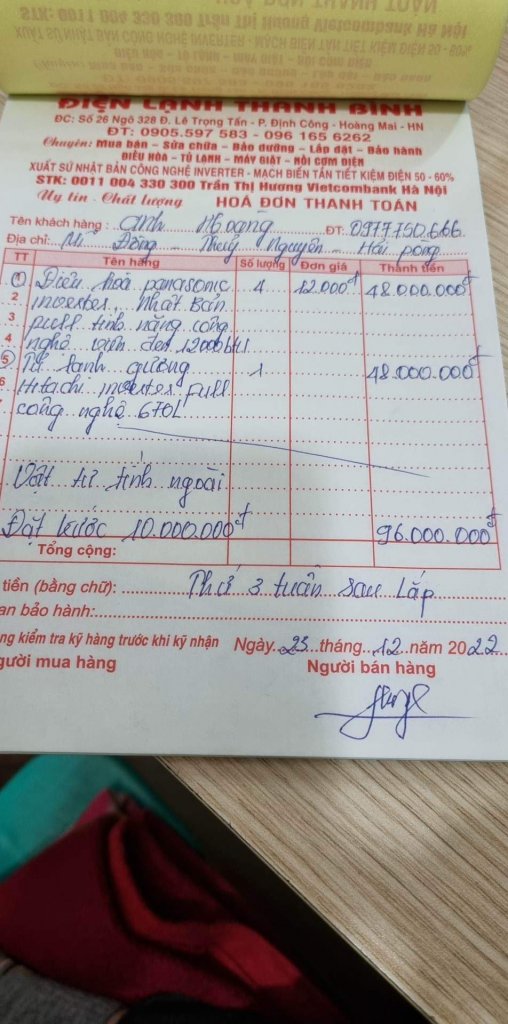 HOÁ ĐƠN THANH TOÁN
STK: 0011 004 330 300 Trần Thị Hương Vietcombank Hà Nội
XUẤT SỨ NHẬT BẢN CÔNG NGHỆ INVERTER - MẠCH BIẾN TẦN TIẾT KIỆM ĐIỆN 50 - 60%
ĐIỆN LẠNH THANH BÌNH
ĐC: Số 26 Ngõ 328 Đ. Lê Trọng Tấn - P. Định Công - Hoàng Mai - HN
ĐT: 0905.597 583 - 096 165 6262
Chuyên: Mua bán - Sửa chữa - Bảo dưỡng - Lắp đặt - Bảo hành
ĐIỀU HÒA - TỦ LẠNH - MÁY GIẶT - NỒI CƠM ĐIỆN
XUẤT SỨ NHẬT BẢN CÔNG NGHỆ INVERTER - MẠCH BIẾN TẦN TIẾT KIỆM ĐIỆN 50 - 60%
STK: 0011 004 330 300 Trần Thị Hương Vietcombank Hà Nội
Uy tín - Chất lượng HOÁ ĐƠN THANH TOÁN
Tên khách hàng: Anh Hoàng ĐT: 0977750.666
Địa chỉ: Mĩ Đồng - Thuỷ Nguyên - Hải phòng
TT Tên hàng Số lượng Đơn giá Thành tiền
1 Điều hoà panasonic 4 12.000đ 48.000.000đ
2 inverter Nhật Bản
3 full tính năng công
4 nghệ 12000btu
5 Tủ lạnh gương 1 48.000.000đ
6 Hitachi inverter full
công nghệ 670L
Vật tư tính ngoài
Đặt trước 10.000.000đ 96.000.000đ
Tổng cộng:
tiền (bằng chữ): Thứ 3 tuần sau Lắp
an bảo hành:
ng kiểm tra kỹ hàng trước khi ký nhận Ngày 23 tháng 12 năm 2022
gười mua hàng Người bán hàng